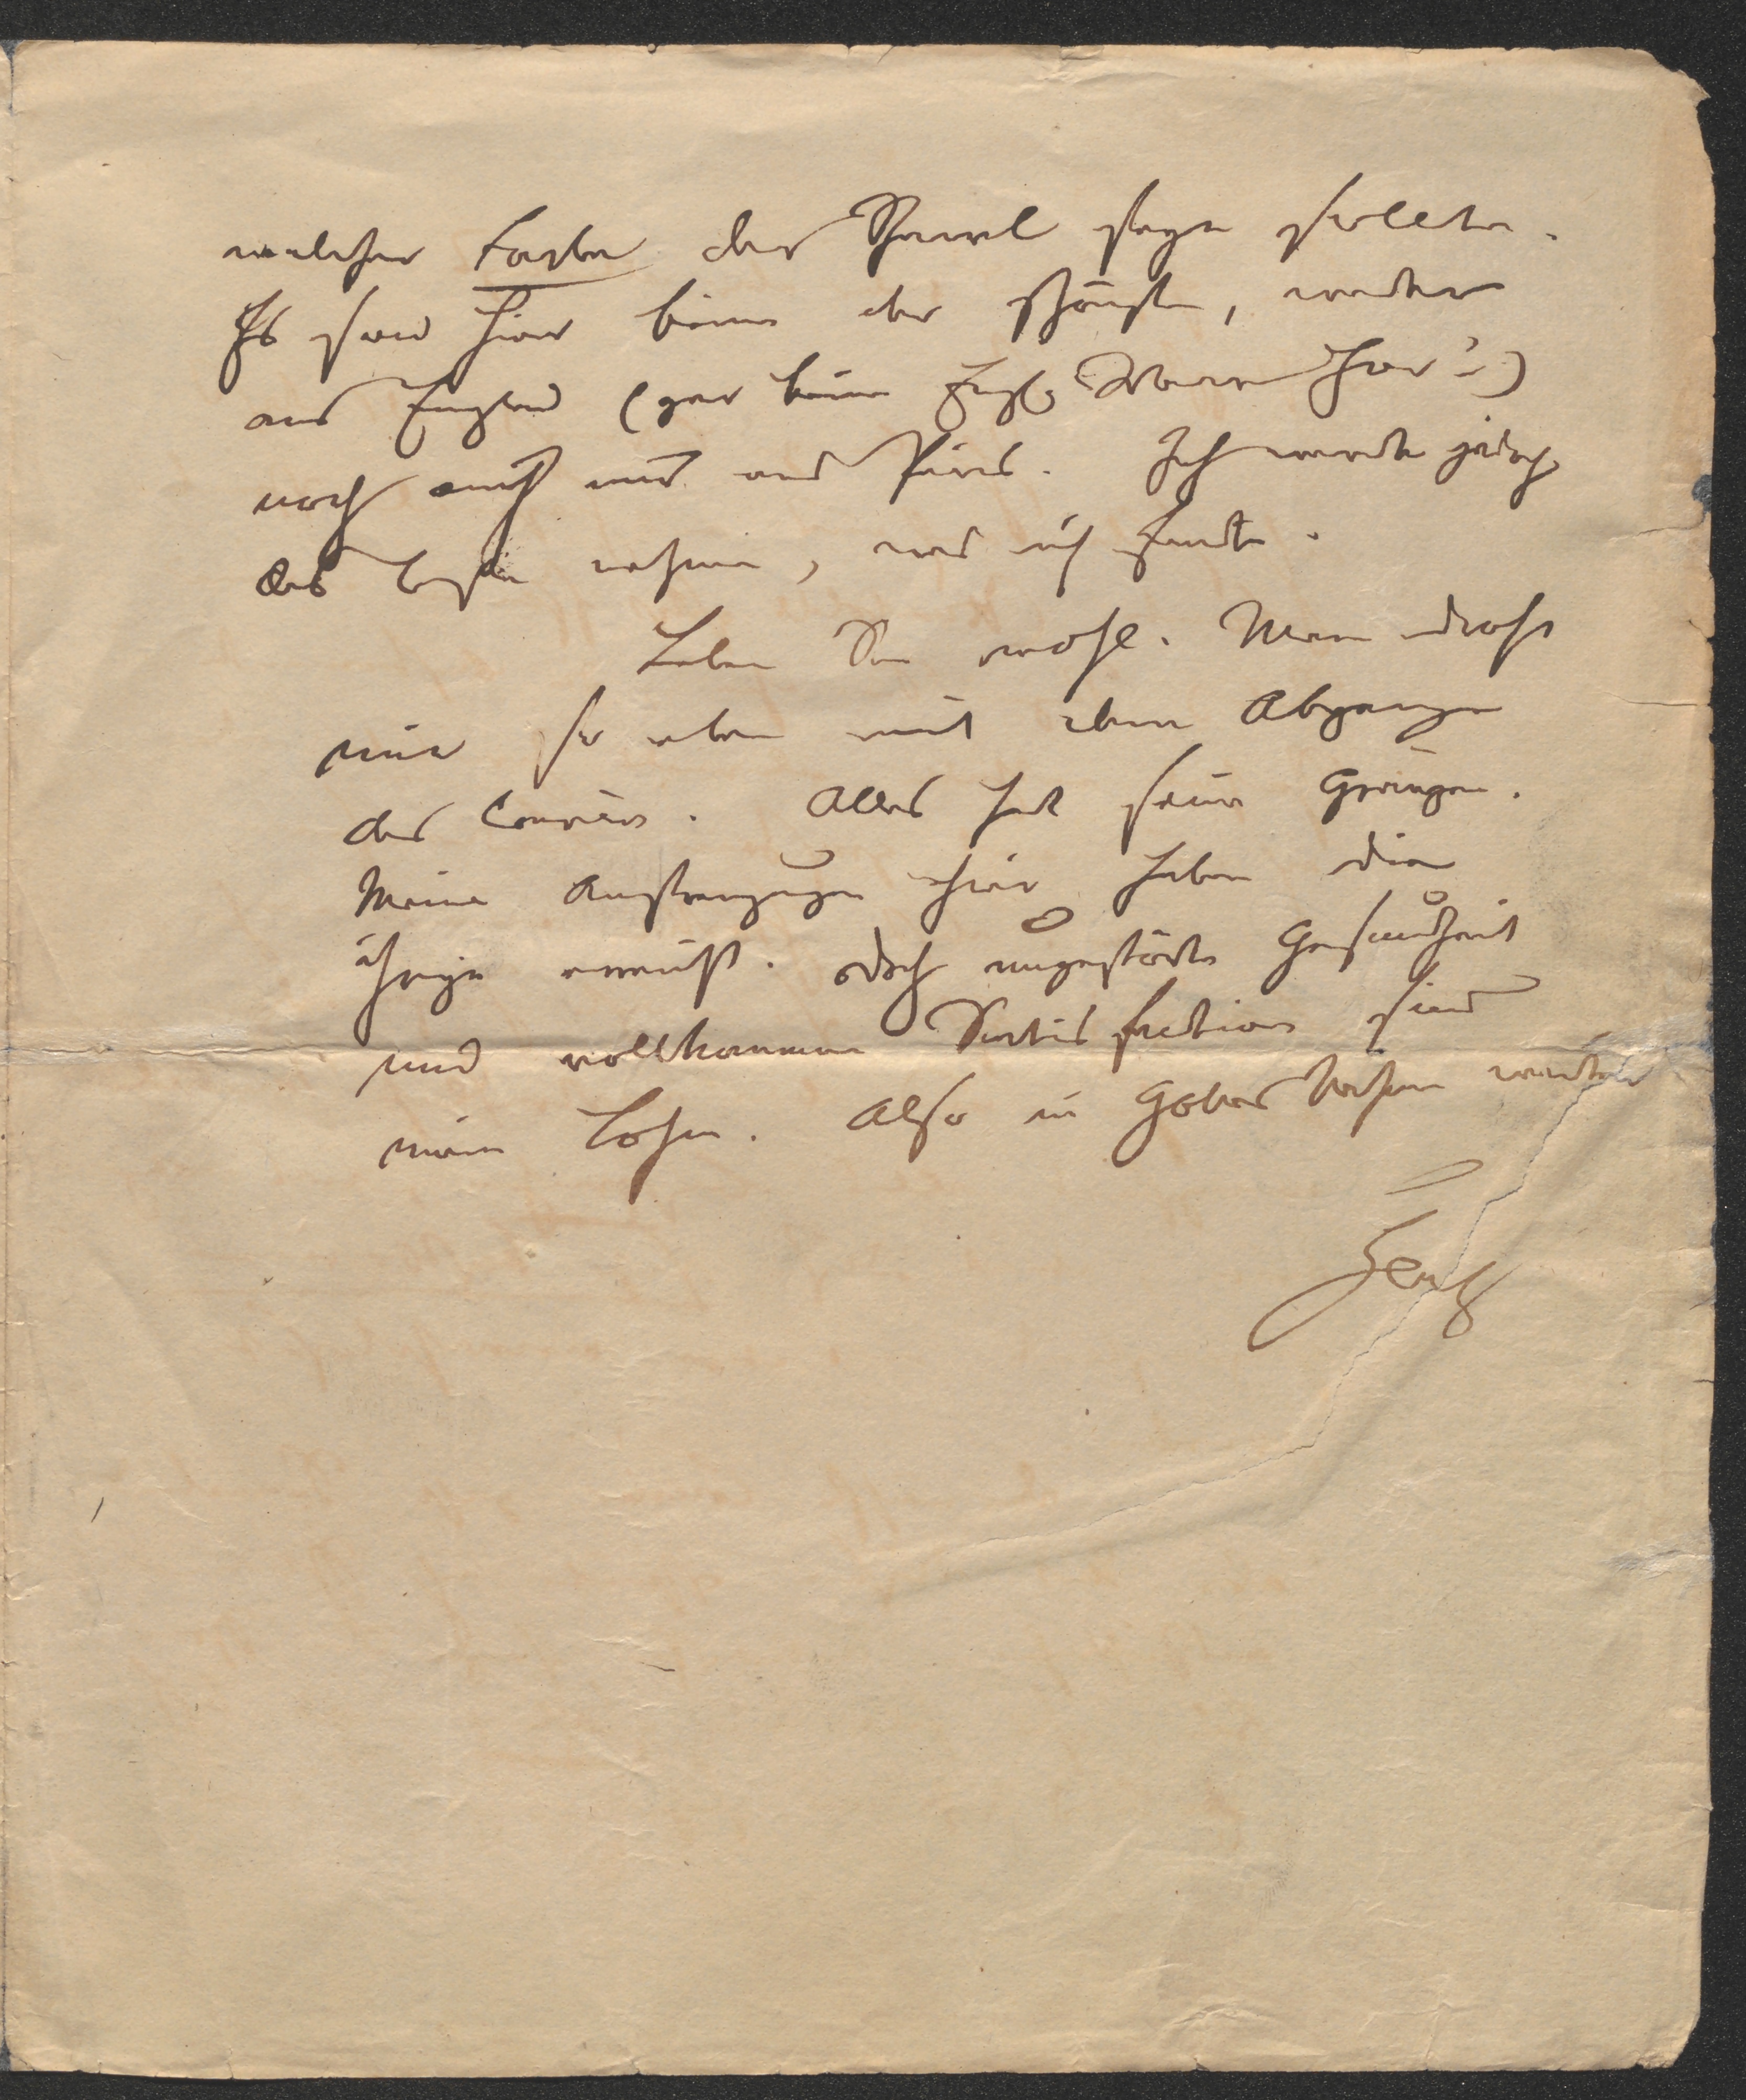 welcher Farbe der Shawl seyn sollte.
Es sind hier keine der schönsten, weder
aus England (gar keine Engl. Waare hier!)
noch auch nur aus Paris. Ich werde jedoch
das beste nehmen, was ich finde.
Leben Sie wohl. Man droht
mir so eben mit dem Abgange
des Couriers. Alles hat seine Gränzen.
Meine Anstrengungen hier haben die
ihrige erreicht. doch ungestörte Gesundheit
und vollkommene Satisfaction sind
mein Lohn. Also in Gottes Nahmen weiter
Gentz